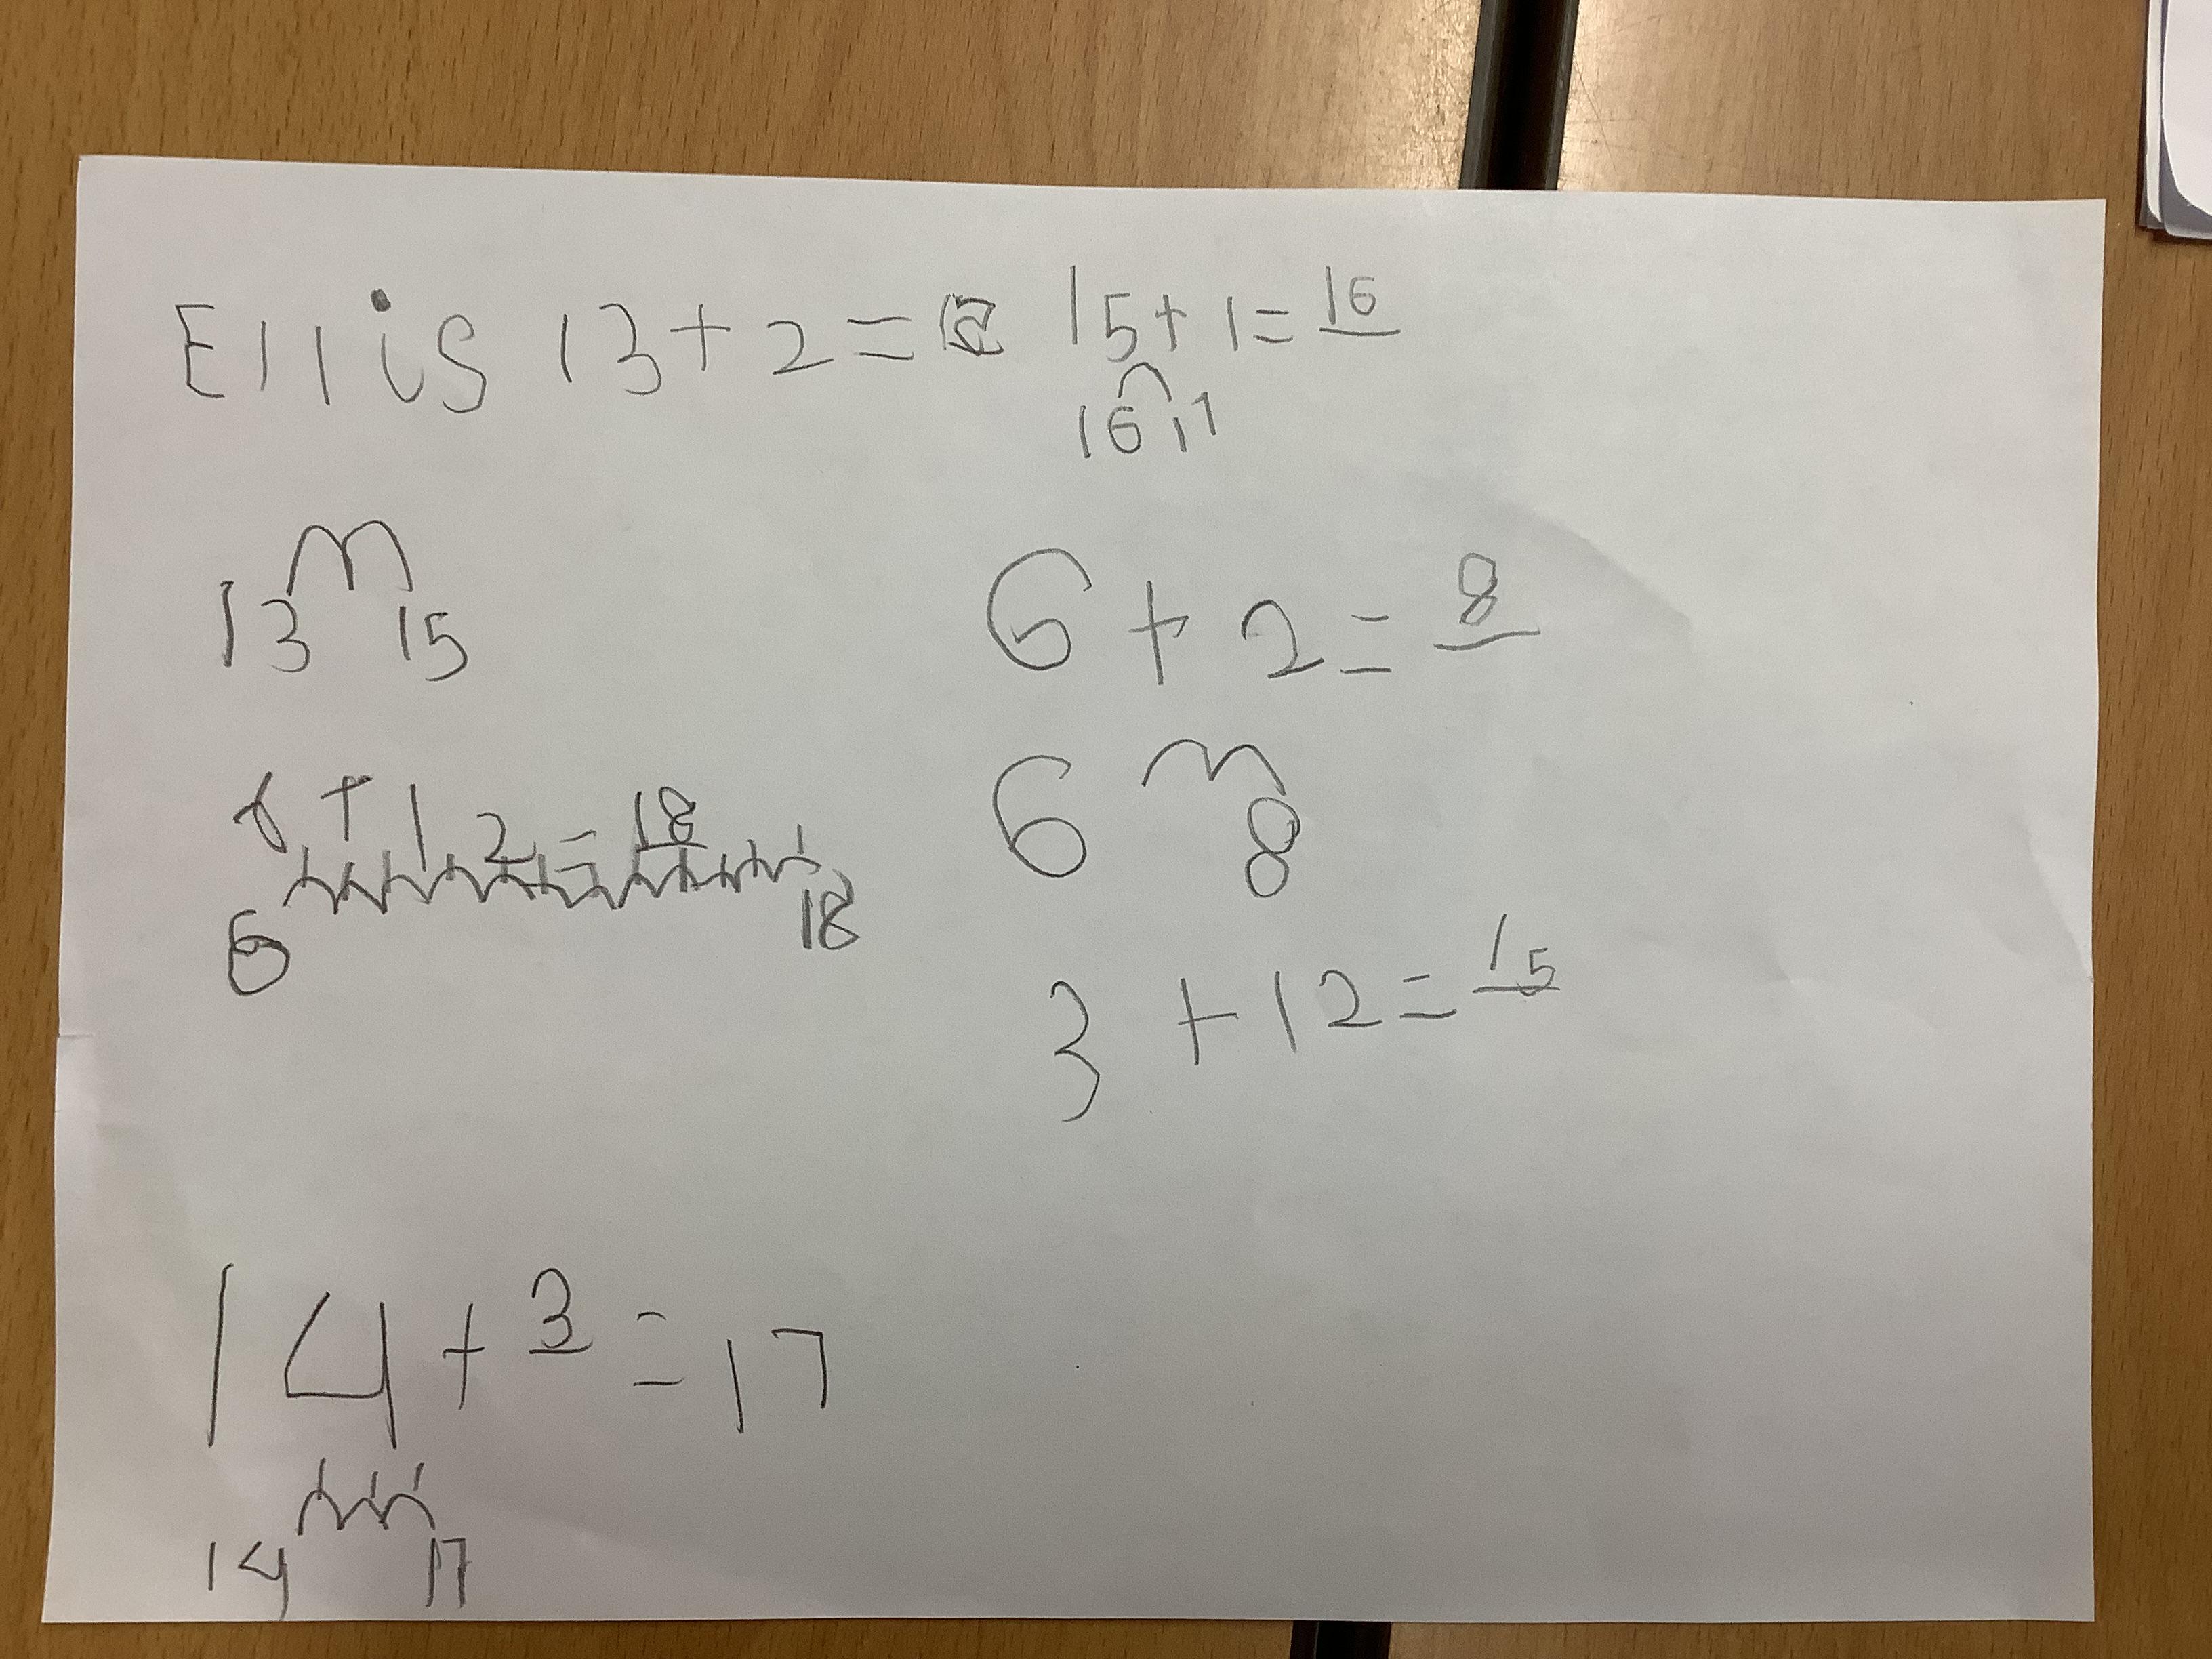 Ellis 13+2= 15+1=16
16 17
13 15
6+2=8
6 8
6+12=18
6 18
3+12=15
14+3=17
14 17